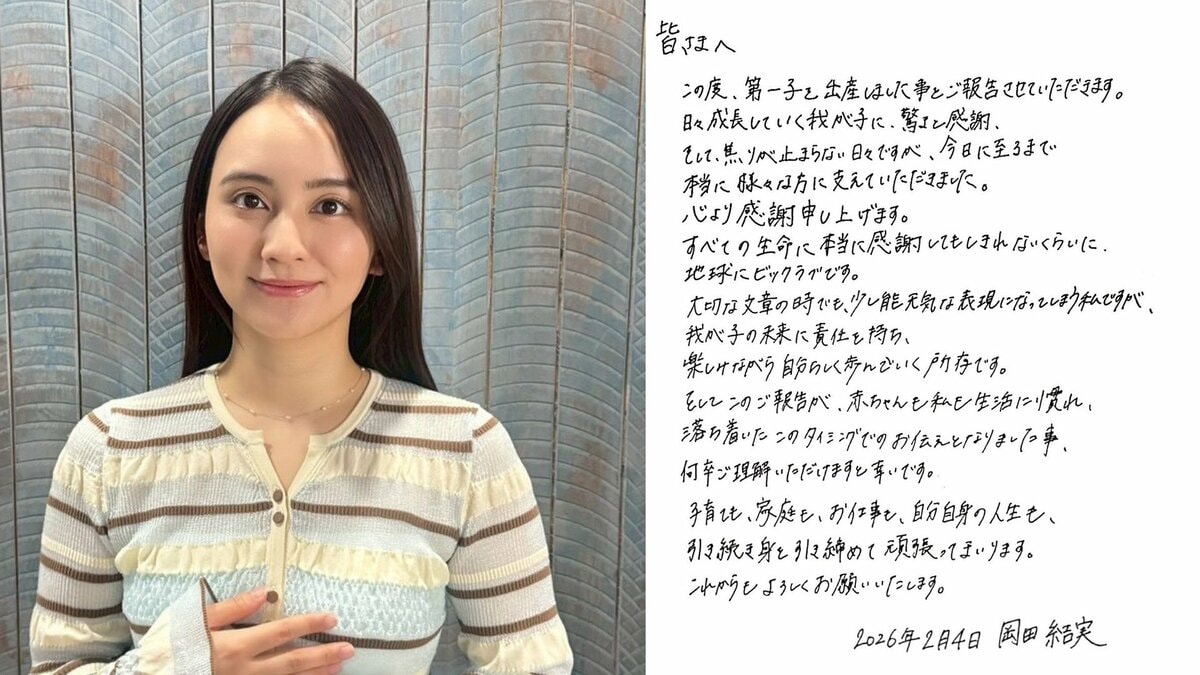 皆さまへ
この度、第一子を出産しました事をご報告させていただきます。
日々成長していく我が子に、驚きと感謝、
そして、焦りが止まらない日々ですが、今日に至るまで
本当に様々な方に支えていただきました。
心より感謝申し上げます。
すべての生命に本当に感謝してもしきれないくらいに、
地球にビックラブです。
大切な文章の時でも、少し能元気な表現になってしまう私ですが、
我が子の未来に責任を持ち、
楽しみながら自分らしく歩んでいく所存です。
そしてこのご報告が、赤ちゃんも私も生活に慣れ、
落ち着いたこのタイミングでのお伝えとなりました事、
何卒ご理解いただけますと幸いです。
子育ても、家庭も、お仕事も、自分自身の人生も、
引き続き身を引き締めて頑張ってまいります。
これからもよろしくお願いいたします。
2026年2月4日 岡田結実